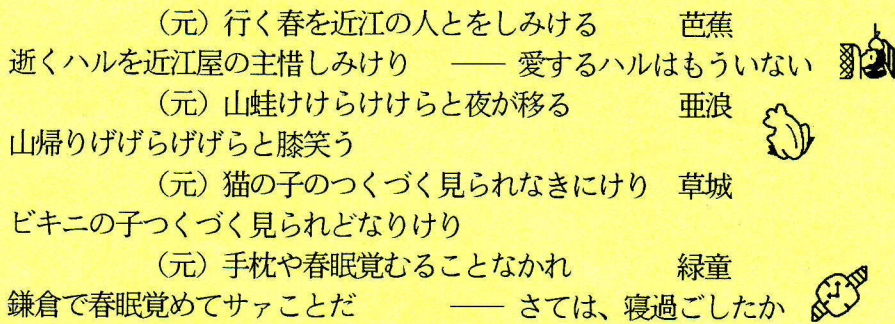 （元）行く春を近江の人とをしみける　　芭蕉
逝くハルを近江屋の主惜しみけり　　―― 愛するハルはもういない
（元）山蛙けけらけけらと夜が移る　　亜浪
山帰りげげらげげらと膝笑う
（元）猫の子のつくづく見られなきにけり　草城
ビキニの子つくづく見られどなりけり
（元）手枕や春眠覚むることなかれ　　緑童
鎌倉で春眠覚めてサァことだ　　―― さては、寝過ごしたか